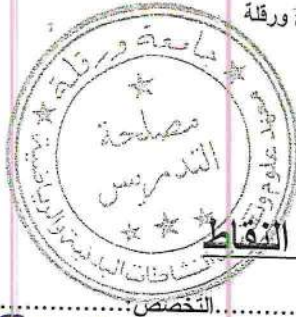 ورقلة
جامعة ورقلة
معهد علوم و
النشاطات البدنية والرياضية
مصلحة
التدريس
النقاط
التخصص: